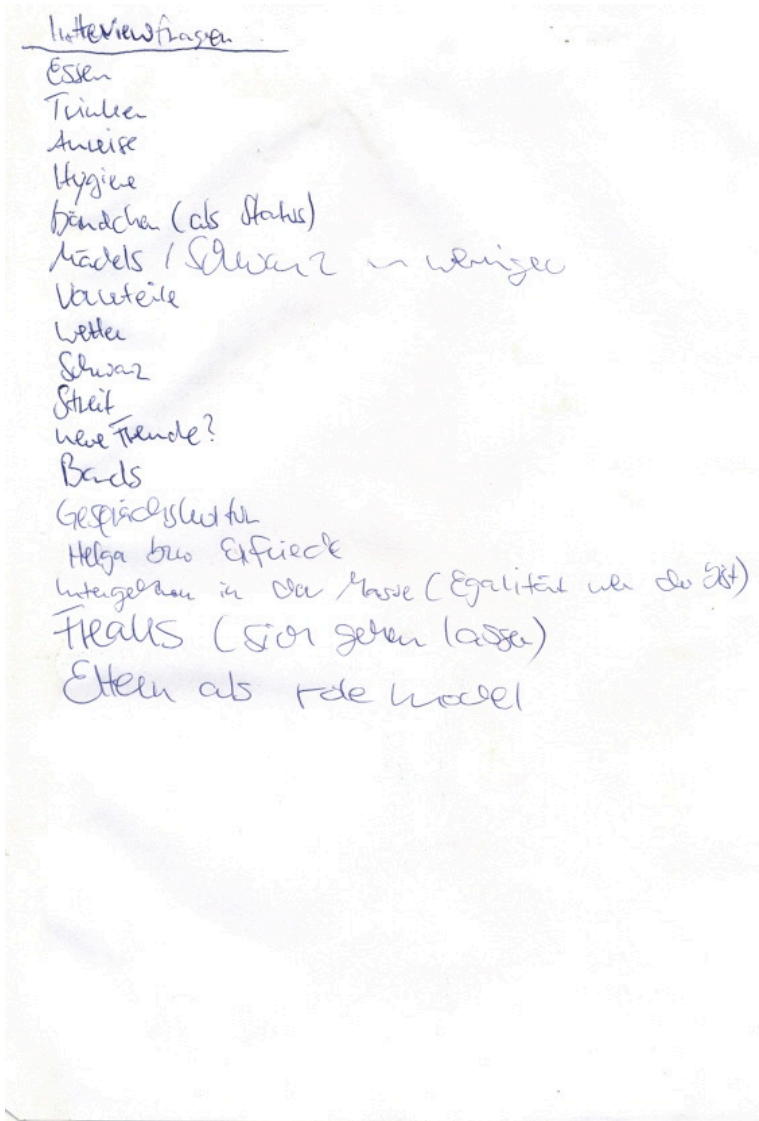 Interviewfragen
Essen
Trinken
Anreise
Hygiene
Bändchen (als Status)
Mädels / Schwarz weniger
Vorurteile
Wetter
Schwarz
Streit
neue Freunde?
Bands
Gesprächskultur
Helga bzw Elfriede
Untergehen in der Masse (Egalität wer du bist)
Freaks (sich gehen lassen)
Eltern als role model